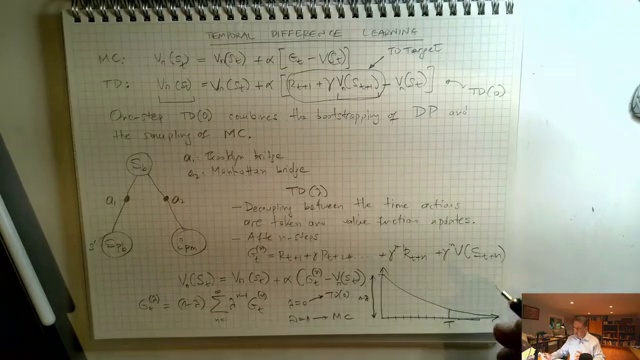 TEMPORAL DIFFERENCE LEARNING
MC: Vπ(St) = Vπ(St) + α [Gt − V(St)]
TD Target
TD: Vπ(St) = Vπ(St) + α [Rt+1 + γ Vπ(St+1) − Vπ(St)]
TD(0)
One-step TD(0) combines the bootstrapping of DP and
the sampling of MC.
S0
a1: Brooklyn bridge
a2: Manhattan bridge
a1
a2
TD(λ)
- Decoupling between the time actions
are taken and value function updates.
- After n-steps
Gt(n) = Rt+1 + γ Rt+2 + ... + γ Rt+n + γ^n V(St+n)
Vπ(St) = Vπ(St) + α (Gt(n) − V(St))
Gt(λ) = (1−λ) Σ n=1 λ^n-1 Gt(n)
λ=0 → TD(0)
λ=1 → MC
T